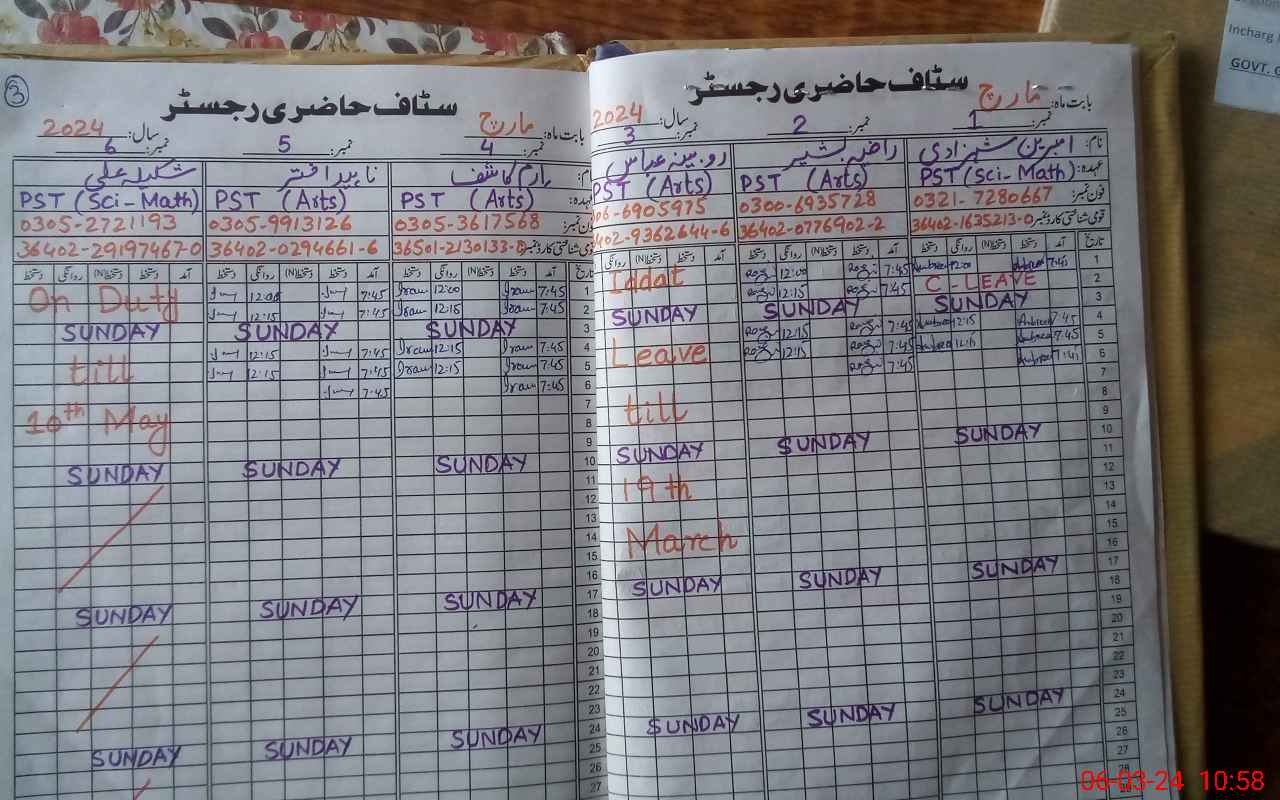 Incharg
GOVT. G
3
سٹاف حاضری رجسٹر
بابت ماہ: مارچ
سال: 2024
نمبر: 1
نمبر: 2
نمبر: 3
نام: امبرین شہزادی
راضیہ بشیر
روبینہ عباس
عہدہ: PST (Sci-Math)
PST (Arts)
PST (Arts)
فون نمبر: 0321-7280667
0300-6935728
06-6905975
قومی شناختی کارڈ نمبر 36402-1635213-0
36402-0776902-2
402-9362644-6
تاریخ آمد دستخط (N) روانگی دستخط
1 7:45 12:00
7:45 12:00
Iddat
2 C-LEAVE
7:45 12:15
3 SUNDAY SUNDAY SUNDAY
4 7:45 12:15
7:45 12:15
Leave
5 7:45
7:45 12:15
6 7:41
7:45
7
8
till
9
10 SUNDAY SUNDAY SUNDAY
11
12
19th
13
14
15
March
16
17 SUNDAY SUNDAY SUNDAY
18
19
20
21
22
23
24 SUNDAY SUNDAY SUNDAY
25
26
27
28
سٹاف حاضری رجسٹر
بابت ماہ: مارچ
سال: 2024
نمبر: 4
نمبر: 5
نمبر: 6
ارم کاشف
ناہید اختر
شکیلہ علی
PST (Arts)
PST (Arts)
PST (Sci-Math)
0305-3617568
0305-9913126
0305-2721193
قومی شناختی کارڈ نمبر 36501-2130133-8
36402-0294661-6
36402-29197467-0
تاریخ آمد دستخط (N) روانگی دستخط
1 7:45 Iram 12:00 Iram
7:45 12:00
On Duty
2 7:45 Iram 12:15 Iram
7:45 12:15
3 SUNDAY SUNDAY SUNDAY
4 7:45 Iram 12:15 Iram
7:45 12:15
till
5 7:45 Iram 12:15 Iram
7:45 12:15
6 7:45 Iram
7:45
7
8
10th May
9
10 SUNDAY SUNDAY SUNDAY
11
12
13
14
15
16
17 SUNDAY SUNDAY SUNDAY
18
19
20
21
22
23
24 SUNDAY SUNDAY SUNDAY
25
26
27
06-03-24 10:58